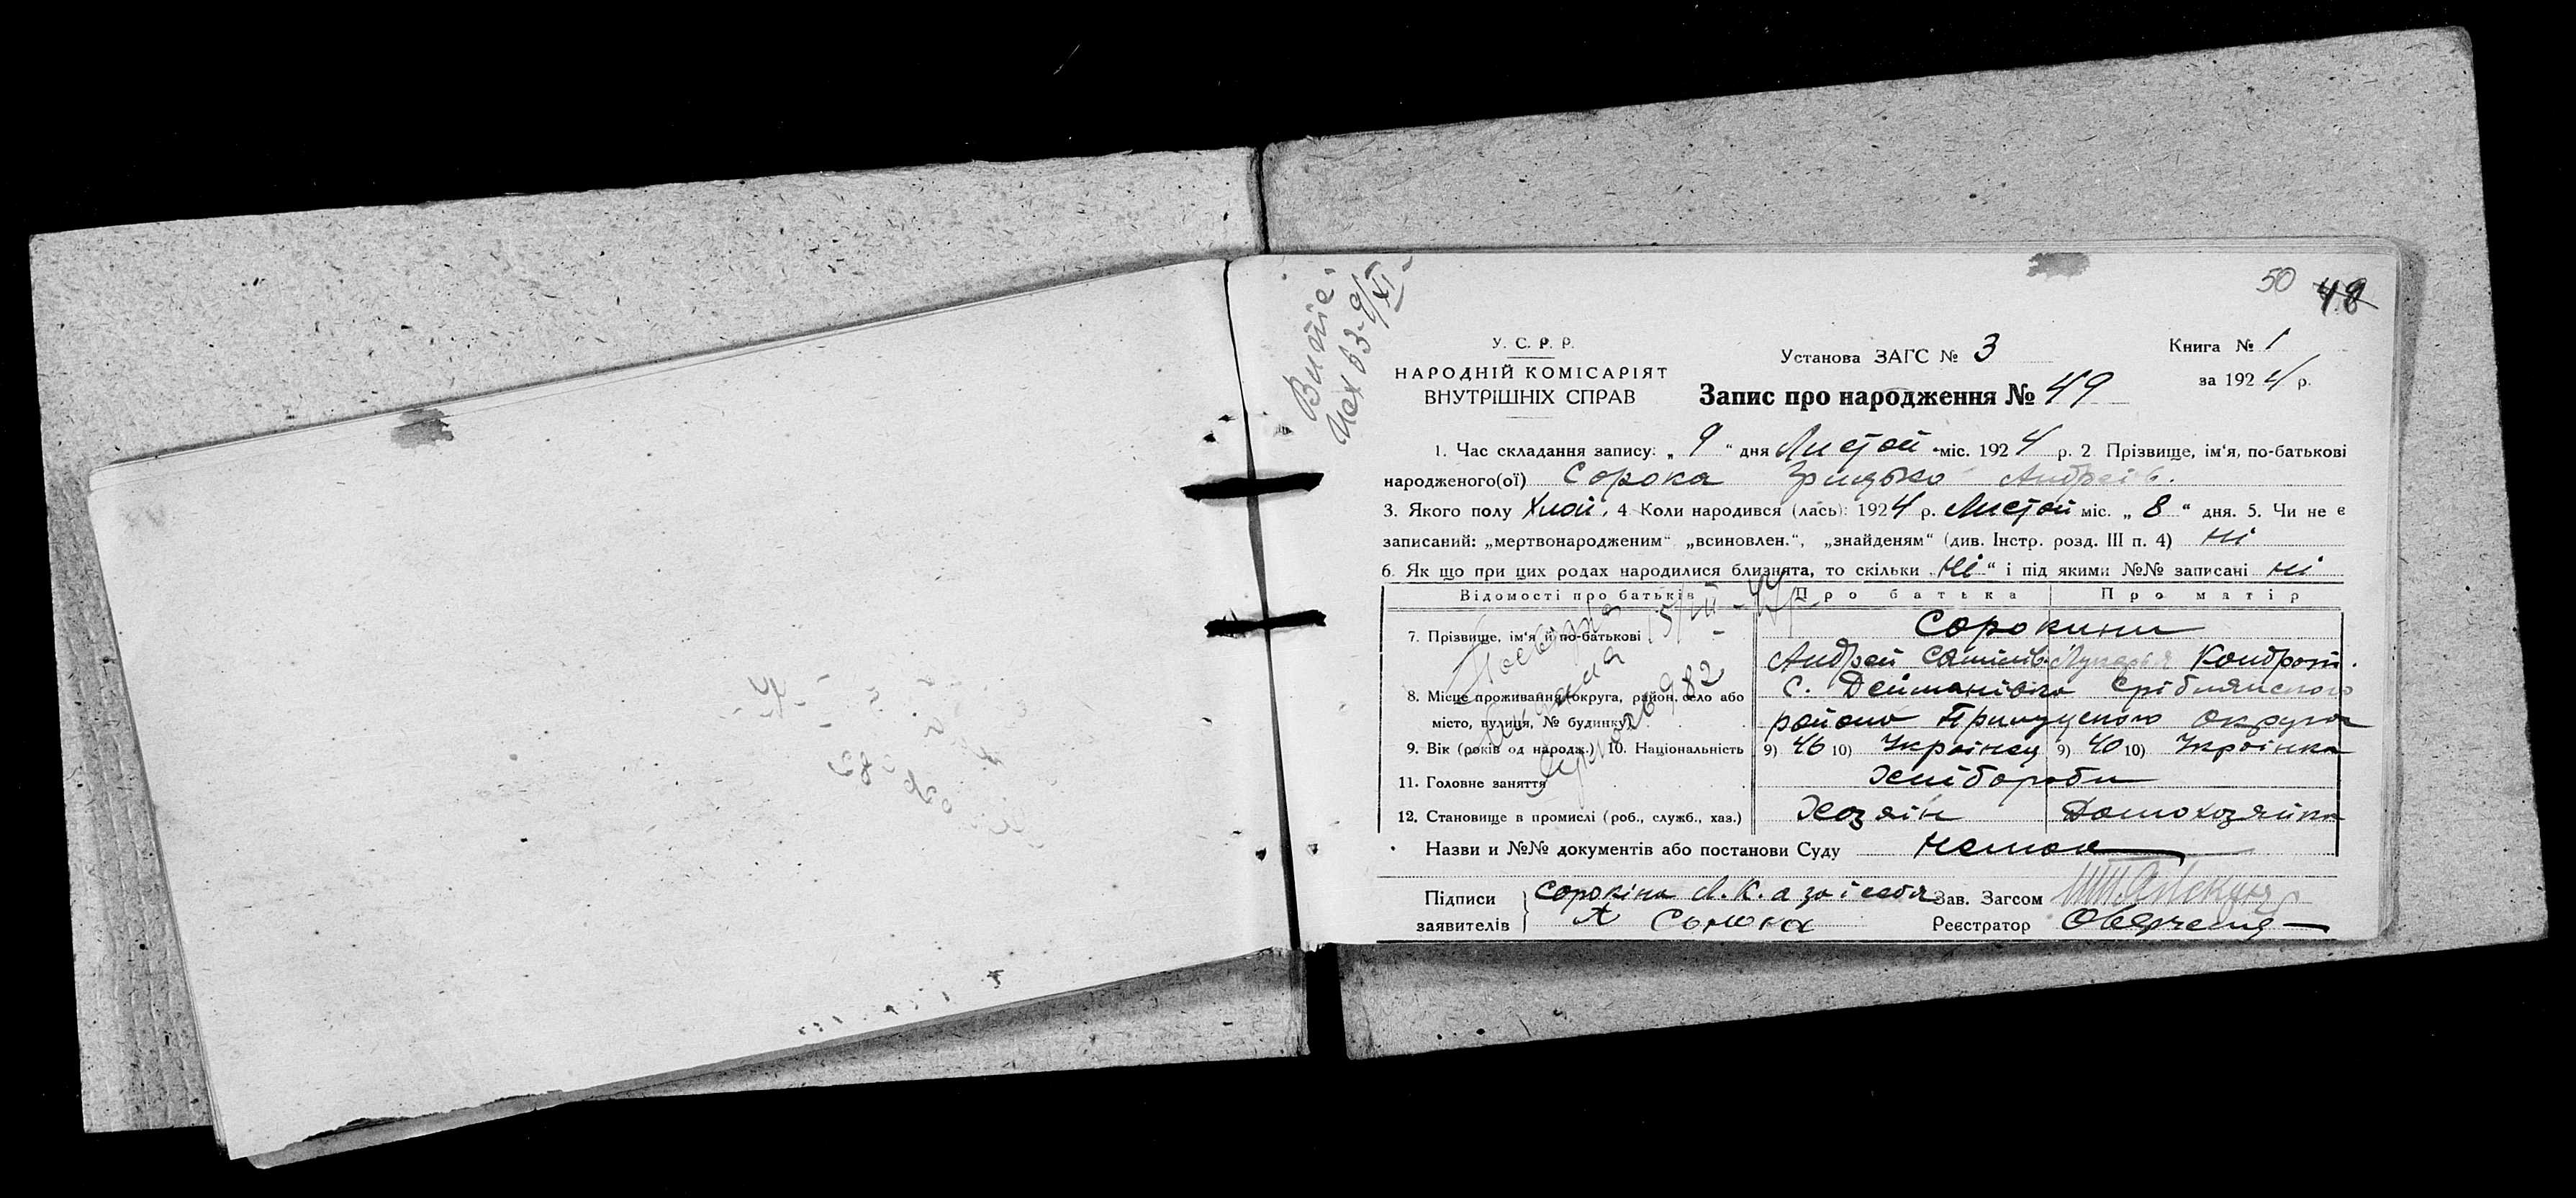 50 48
У. С. Р. Р.
НАРОДНІЙ КОМІСАРІЯТ
ВНУТРІШНІХ СПРАВ
Установа ЗАГС № 3
Книга № 1
за 1924 р.
Запис про народження № 49
1. Час складання запису: „ 9 “ дня Листоп міс. 1924 р. 2 Прізвище, ім'я, по-батькові
народженого(ої) Сорока Грицько Андреів.
3. Якого полу Хлоп. 4 Коли народився (лась): 1924 р. Листоп міс. „ 8 “ дня. 5. Чи не є
записаний: „мертвонародженим“ „всиновлен.“, „знайденям“ (див. Інстр. розд. III п. 4) Ні
6. Як що при цих родах народилися близнята, то скільки „Ні“ і під якими №№ записані Ні
Відомості про батьків Про батька Про матір
7. Прізвище, ім'я й по-батькові Сорокини
Андрей Кондрат.
8. Місце проживання (округа, район, село або С. Дейманівка Срібнянського
місто, вулиця, № будинку) району Прилуцького Округа
9. Вік (років од народж.) 10. Національність 9) 46 10) Украінец 9) 40 10) Украінка
11. Головне заняття Хлібороби
12. Становище в промислі (роб., служб., хаз.) Хозяін Домохозяйка
Назви и №№ документів або постанови Суду Немає
Підписи Сорокіна Л. К. а за і себя Зав. Загсом
заявителів Реєстратор